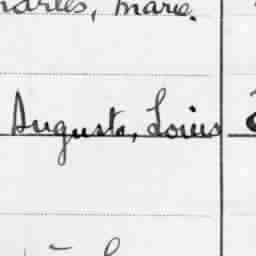 harles, Marie.
Augusta, Louis